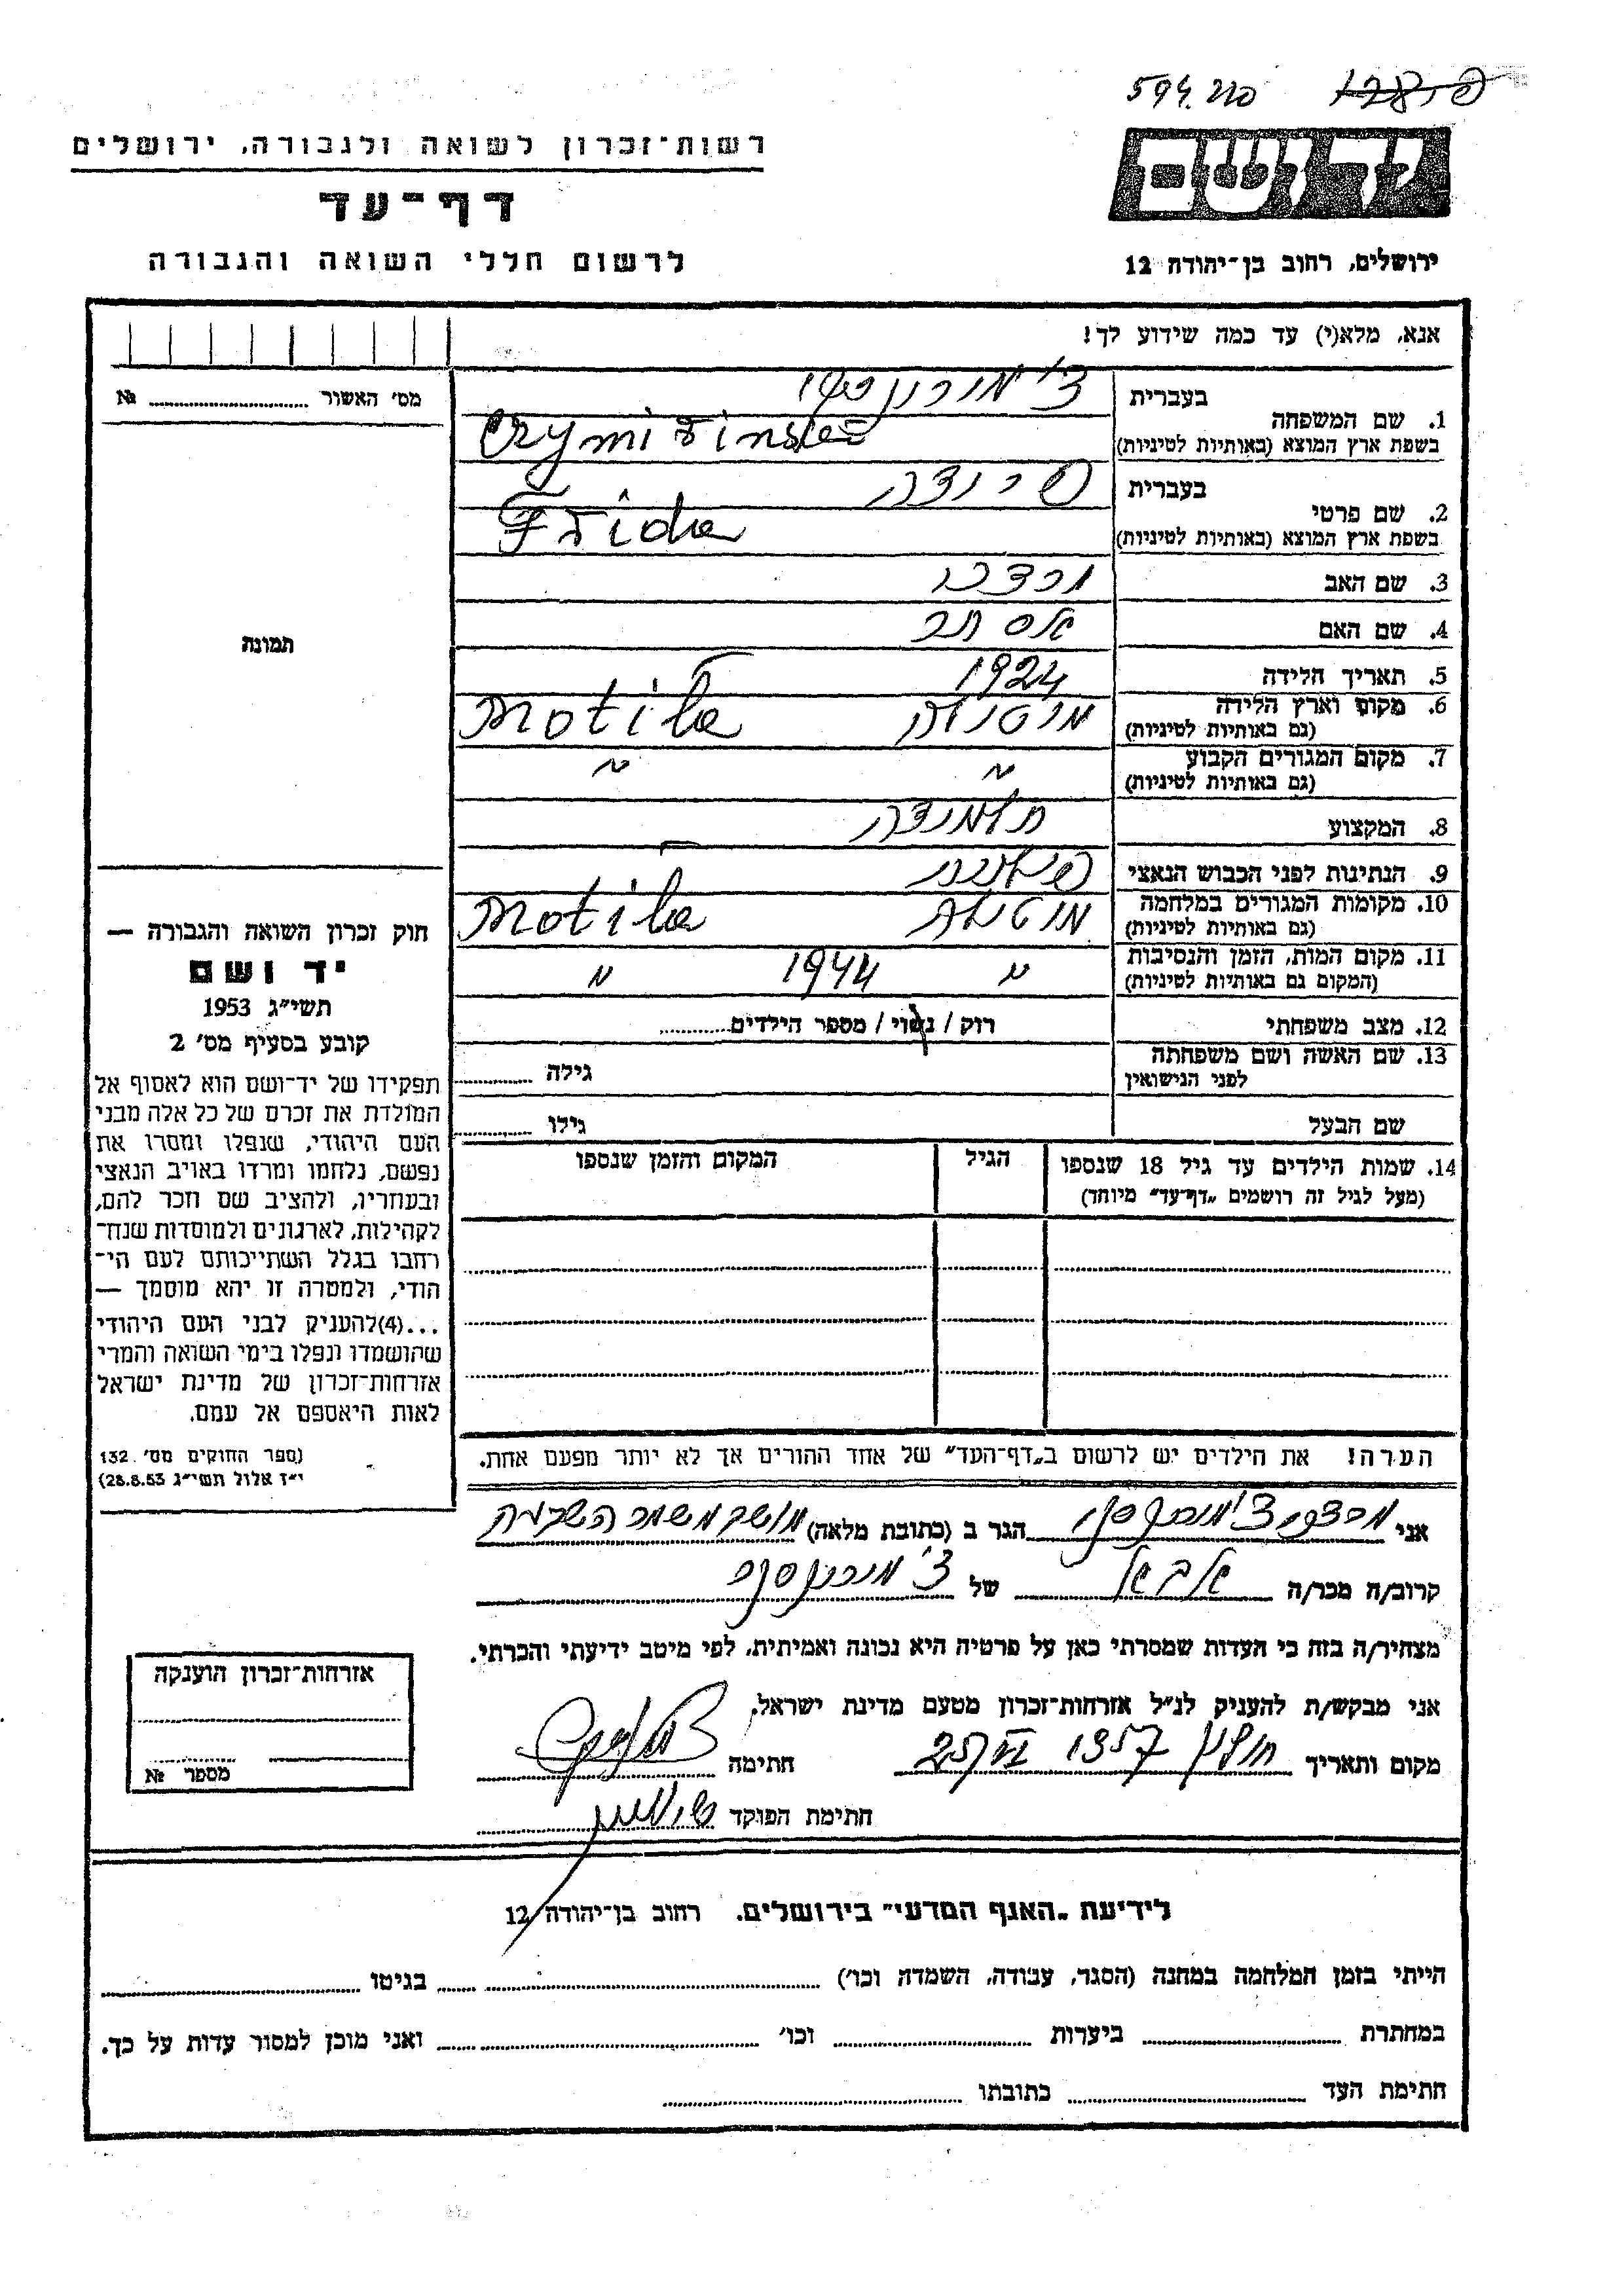 594.210
רשות־זכרון לשואה ולגבורה, ירושלים
דף־עד
לרשום חללי השואה והגבורה
יד ושם
ירושלים, רחוב בן־יהודה 12
אנא, מלא(י) עד כמה שידוע לך!
מס׳ האשור №
תמונה
1. שם המשפחה
בעברית
בשפת ארץ המוצא (באותיות לטיניות)
2. שם פרטי
בעברית פרידה
בשפת ארץ המוצא (באותיות לטיניות) Frida
3. שם האב מרדכי
4. שם האם אסתר
5. תאריך הלידה 1924
6. מקום וארץ הלידה
(גם באותיות לטיניות) Motila
7. מקום המגורים הקבוע " "
(גם באותיות לטיניות)
8. המקצוע תלמידה
9. הנתינות לפני הכבוש הנאצי
10. מקומות המגורים במלחמה
(גם באותיות לטיניות) Motila
11. מקום המות, הזמן והנסיבות " 1944 "
(המקום גם באותיות לטיניות)
12. מצב משפחתי רוק / נשוי / מספר הילדים
13. שם האשה ושם משפחתה
לפני הנישואין גילה
שם הבעל גילו
14. שמות הילדים עד גיל 18 שנספו הגיל המקום והזמן שנספו
(מעל לגיל זה רושמים „דף־עד” מיוחד)
הערה! את הילדים יש לרשום ב„דף־העד” של אחד ההורים אך לא יותר מפעם אחת.
חוק זכרון השואה והגבורה —
יד ושם
תשי״ג 1953
קובע בסעיף מס׳ 2
תפקידו של יד־ושם הוא לאסוף אל
המולדת את זכרם של כל אלה מבני
העם היהודי, שנפלו ומסרו את
נפשם, נלחמו ומרדו באויב הנאצי
ובעוזריו, ולהציב שם וזכר להם,
לקהילות, לארגונים ולמוסדות שנח־
רחבו בגלל השתייכותם לעם הי־
הודי, ולמטרה זו יהא מוסמך —
...(4)להעניק לבני העם היהודי
שהושמדו ונפלו בימי השואה והמרי
אזרחות־זכרון של מדינת ישראל
לאות היאספם אל עמם.
(ספר החוקים מס׳ 132
י״ז אלול תשי״ג 28.8.53)
אני מרדכי הגר ב (כתובת מלאה) מושב משמר השבעה
קרוב/ה מכר/ה אב של
מצהיר/ה בזה כי העדות שמסרתי כאן על פרטיה היא נכונה ואמיתית, לפי מיטב ידיעתי והכרתי.
אני מבקש/ת להעניק לנ״ל אזרחות־זכרון מטעם מדינת ישראל.
מקום ותאריך חתימה
חתימת הפוקד
אזרחות־זכרון הוענקה
מספר №
לידיעת „האנף המדעי” בירושלים. רחוב בן־יהודה 12
הייתי בזמן המלחמה במחנה (הסגר, עבודה, השמדה וכו׳) בגיטו
במחתרת ביערות וכו׳ ואני מוכן למסור עדות על כך.
חתימת העד כתובתו